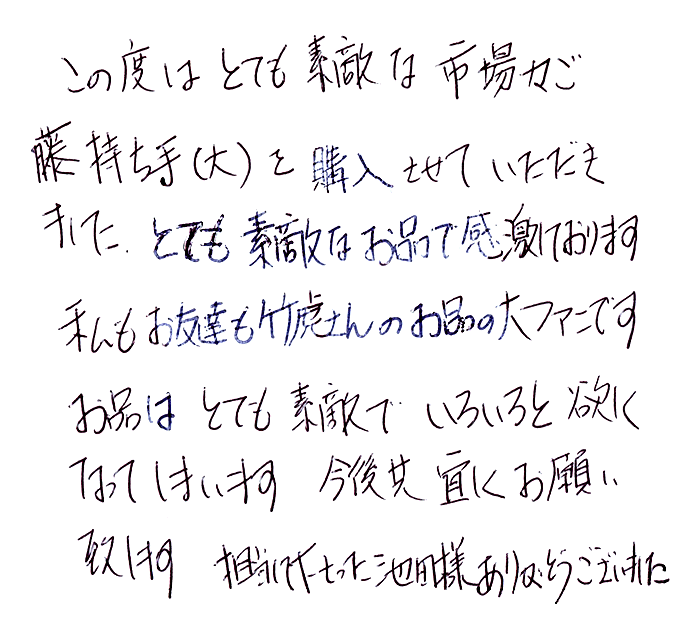 この度は とても 素敵な 市場かご
藤持ち手(大)を 購入 させて いただき
ました. とても 素敵なお品で感激しております
私もお友達も竹虎さんのお品の大ファンです
お品は とても 素敵で いろいろと 欲しく
なってしまいます 今後共 宜しくお願い
致します 担当して下さった池田様ありがとうございました